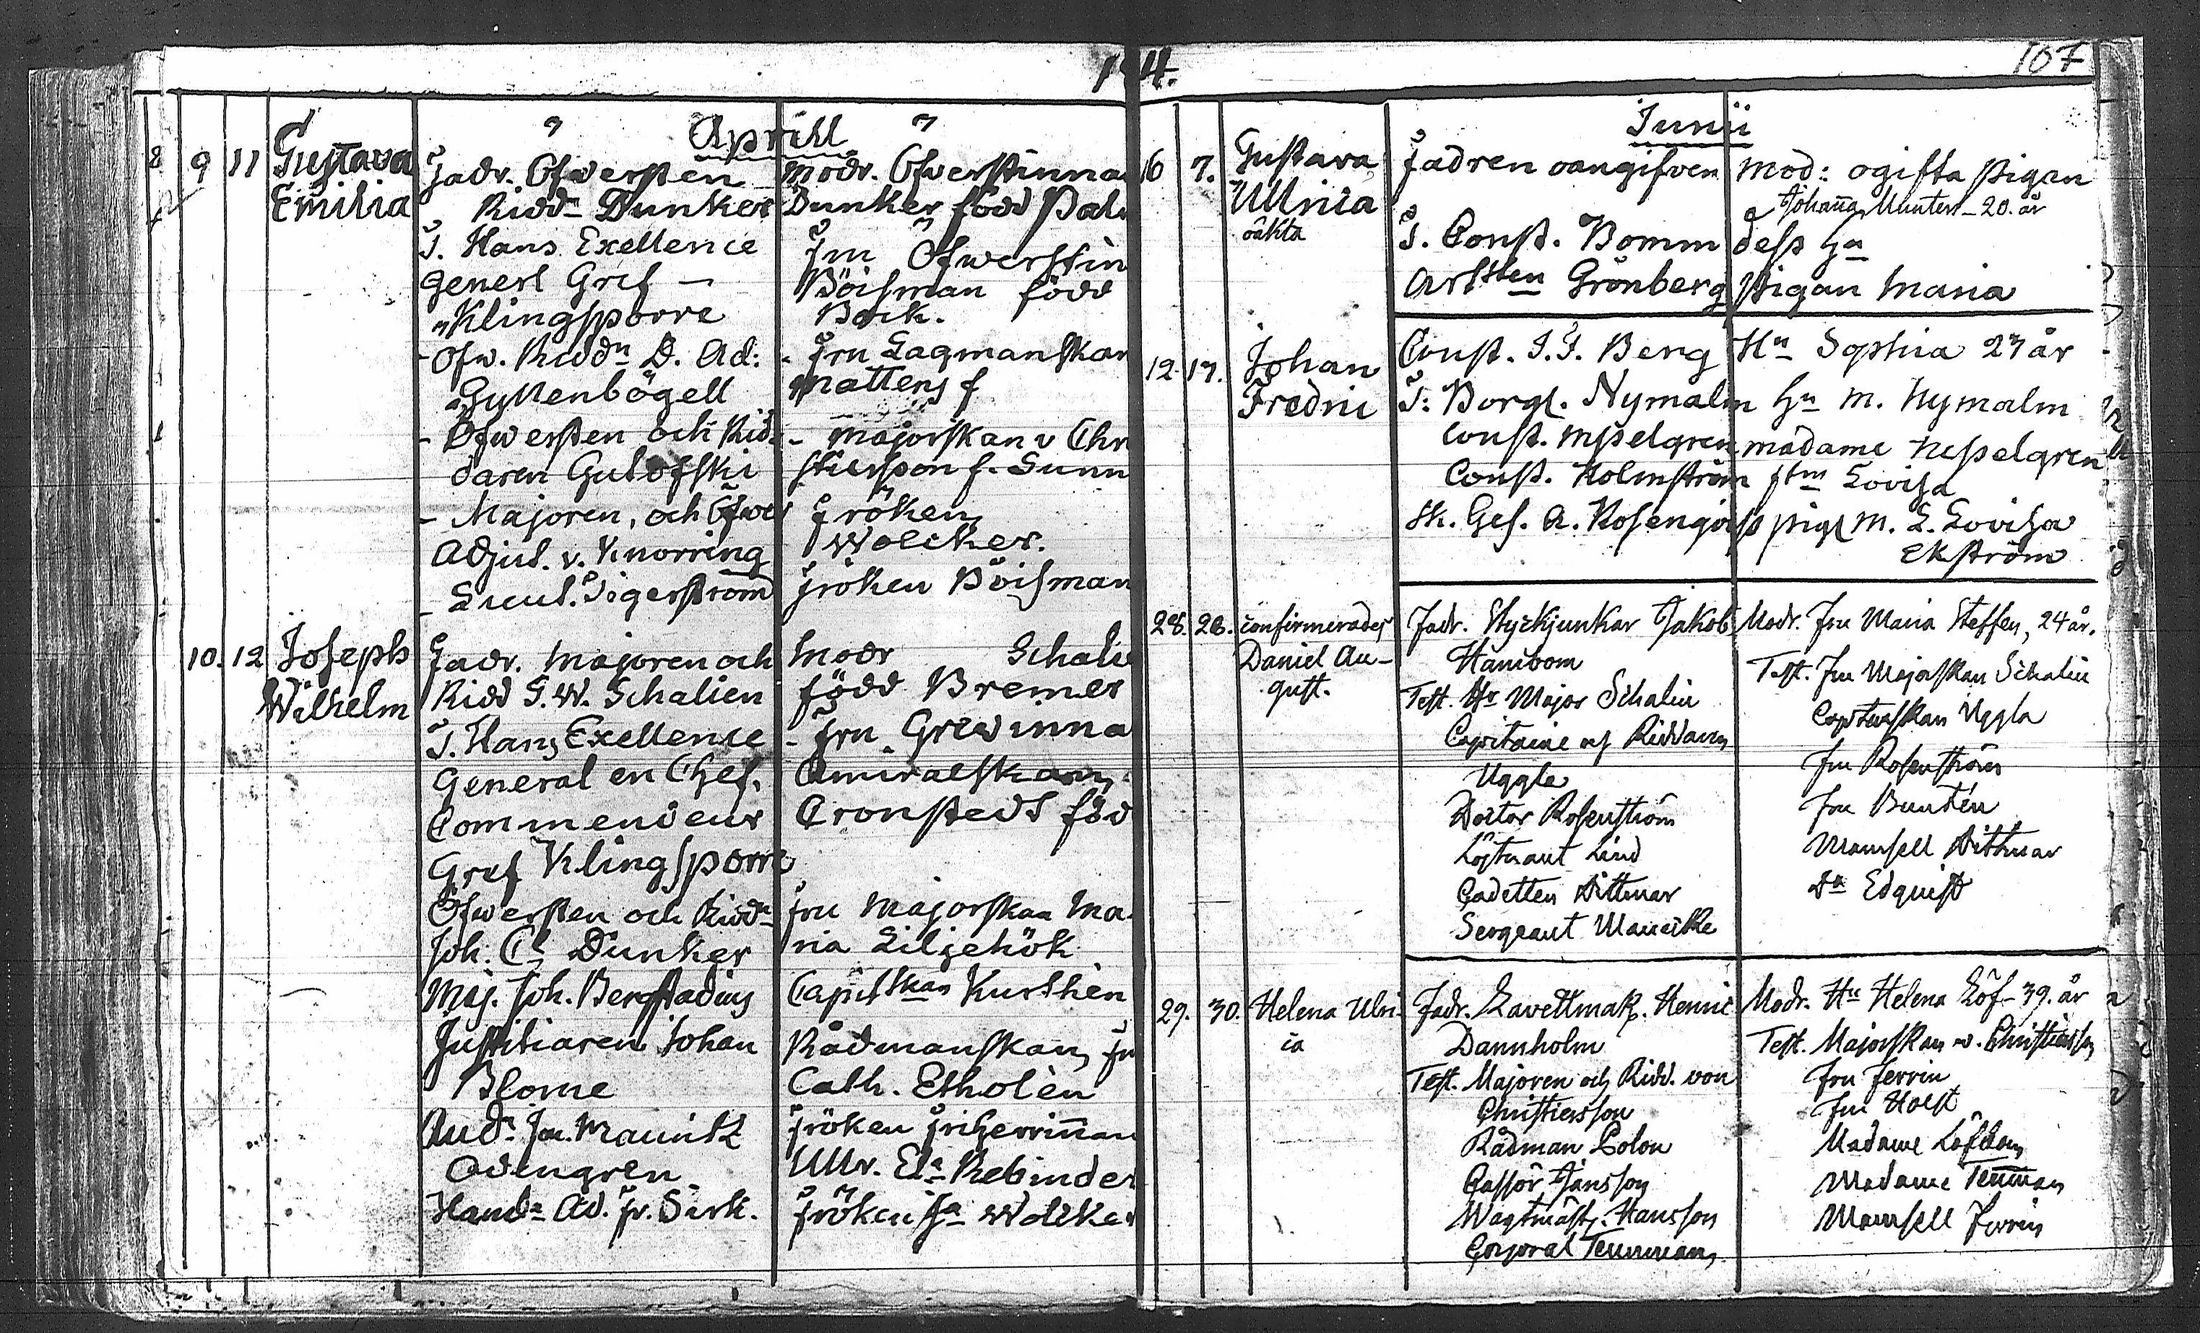 107
Aprill
8 9 11 Gustava
Emilia
Fadr. Öfwersten
Ridd. Dunker
T. Hans Exellence
Generl Gref —
Klingsporre
- Öfw. Ridd. D. Ad:
Gyllenbögell
- Öfwersten och Rid-
daren Gutofski
- Majoren, och Öfwer
Adjut. v. Knorring
- Lieut. Tigerström
Modr. Öfwerstinnan
Dunker född
Fru Öfwerstin
Böisman född
Bock.
- Fru Lagmanskan
Mattens f
- Majorskan v Chri
stiersson f. Sunn
Fröken
Wolcker.
Fröken Böisman
10. 12 Joseph
Wilhelm
Fadr. Majoren och
Ridd G. W. Schalien
T. Hans Exellence
General en Chef.
Commendeur
Gref Klingsporre
Öfwersten och Ridd.
Joh. C. Dunker
Maj. Joh. Bergstadius
Justitiaren Johan
Blome
Aud. Jac. Maunitz
Odengren
Hand. Ad. Fr. Sirk.
Modr Schalie
född Bremer
- Fru Grewinna
Amiralskan
Cronstedt föd
Fru Majorskan Ma-
ria Liljehök
Capitskan Kurthen
Rådmanskan Fru
Cath. Etholèn
Fröken Friherrinnan
Ullr. El. Rebinder
Fröken Fa Wolcker
Junii
16 7. Gustava
Ullrica
oäkta
Fadren oangifven
T. Const. Bomm
Arlsten Grönberg
Mod: ogifta Pigan
Johanna Munter – 20. år
dess Hu
Pigan Maria
12. 17. Johan
Fredric
Const. J. F. Berg
T: Borgl. Nymalm
Const. Nesselgren
Const. Holmström
Sk. Ges. A. Rosengr
Hu Sophia 27 år
Hu M. Nymalm
Madame Nesselgren
Lovisa
pig. M. L. Lovisa
Ekström
28. 28. confirmerades
Daniel Au-
gust.
Fadr. Styckjunkar Jakob
Hambom
Test. Hr Major Schalin
Capitaine och Riddaren
Uggla
Doctor Rosenström
Löjtnant Lind
Cadetten Dittmar
Sergeant Maneike
Modr. Fru Maria Steffen, 24 år.
Test. Fru Majorskan Schalin
Capitenskan Uggla
Fru Rosenström
Fru Buntén
Mamsell Dittmar
Da Edquist
29. 30. Helena Ulri-
ca
Fadr. Lavettmak. Henric
Dannholm
Test. Majoren och Ridd. von
Christiersson
Rådman Solon
Cassör Jansson
Wagtmäst. Hansson
Corporal Tennman
Modr. Hu Helena Löf – 39. år
Test. Majorskan v. Christiersson
Fru Ferrin
Fru Holst
Madame Löfbom
Madame Tennman
Mamsell Ferrin